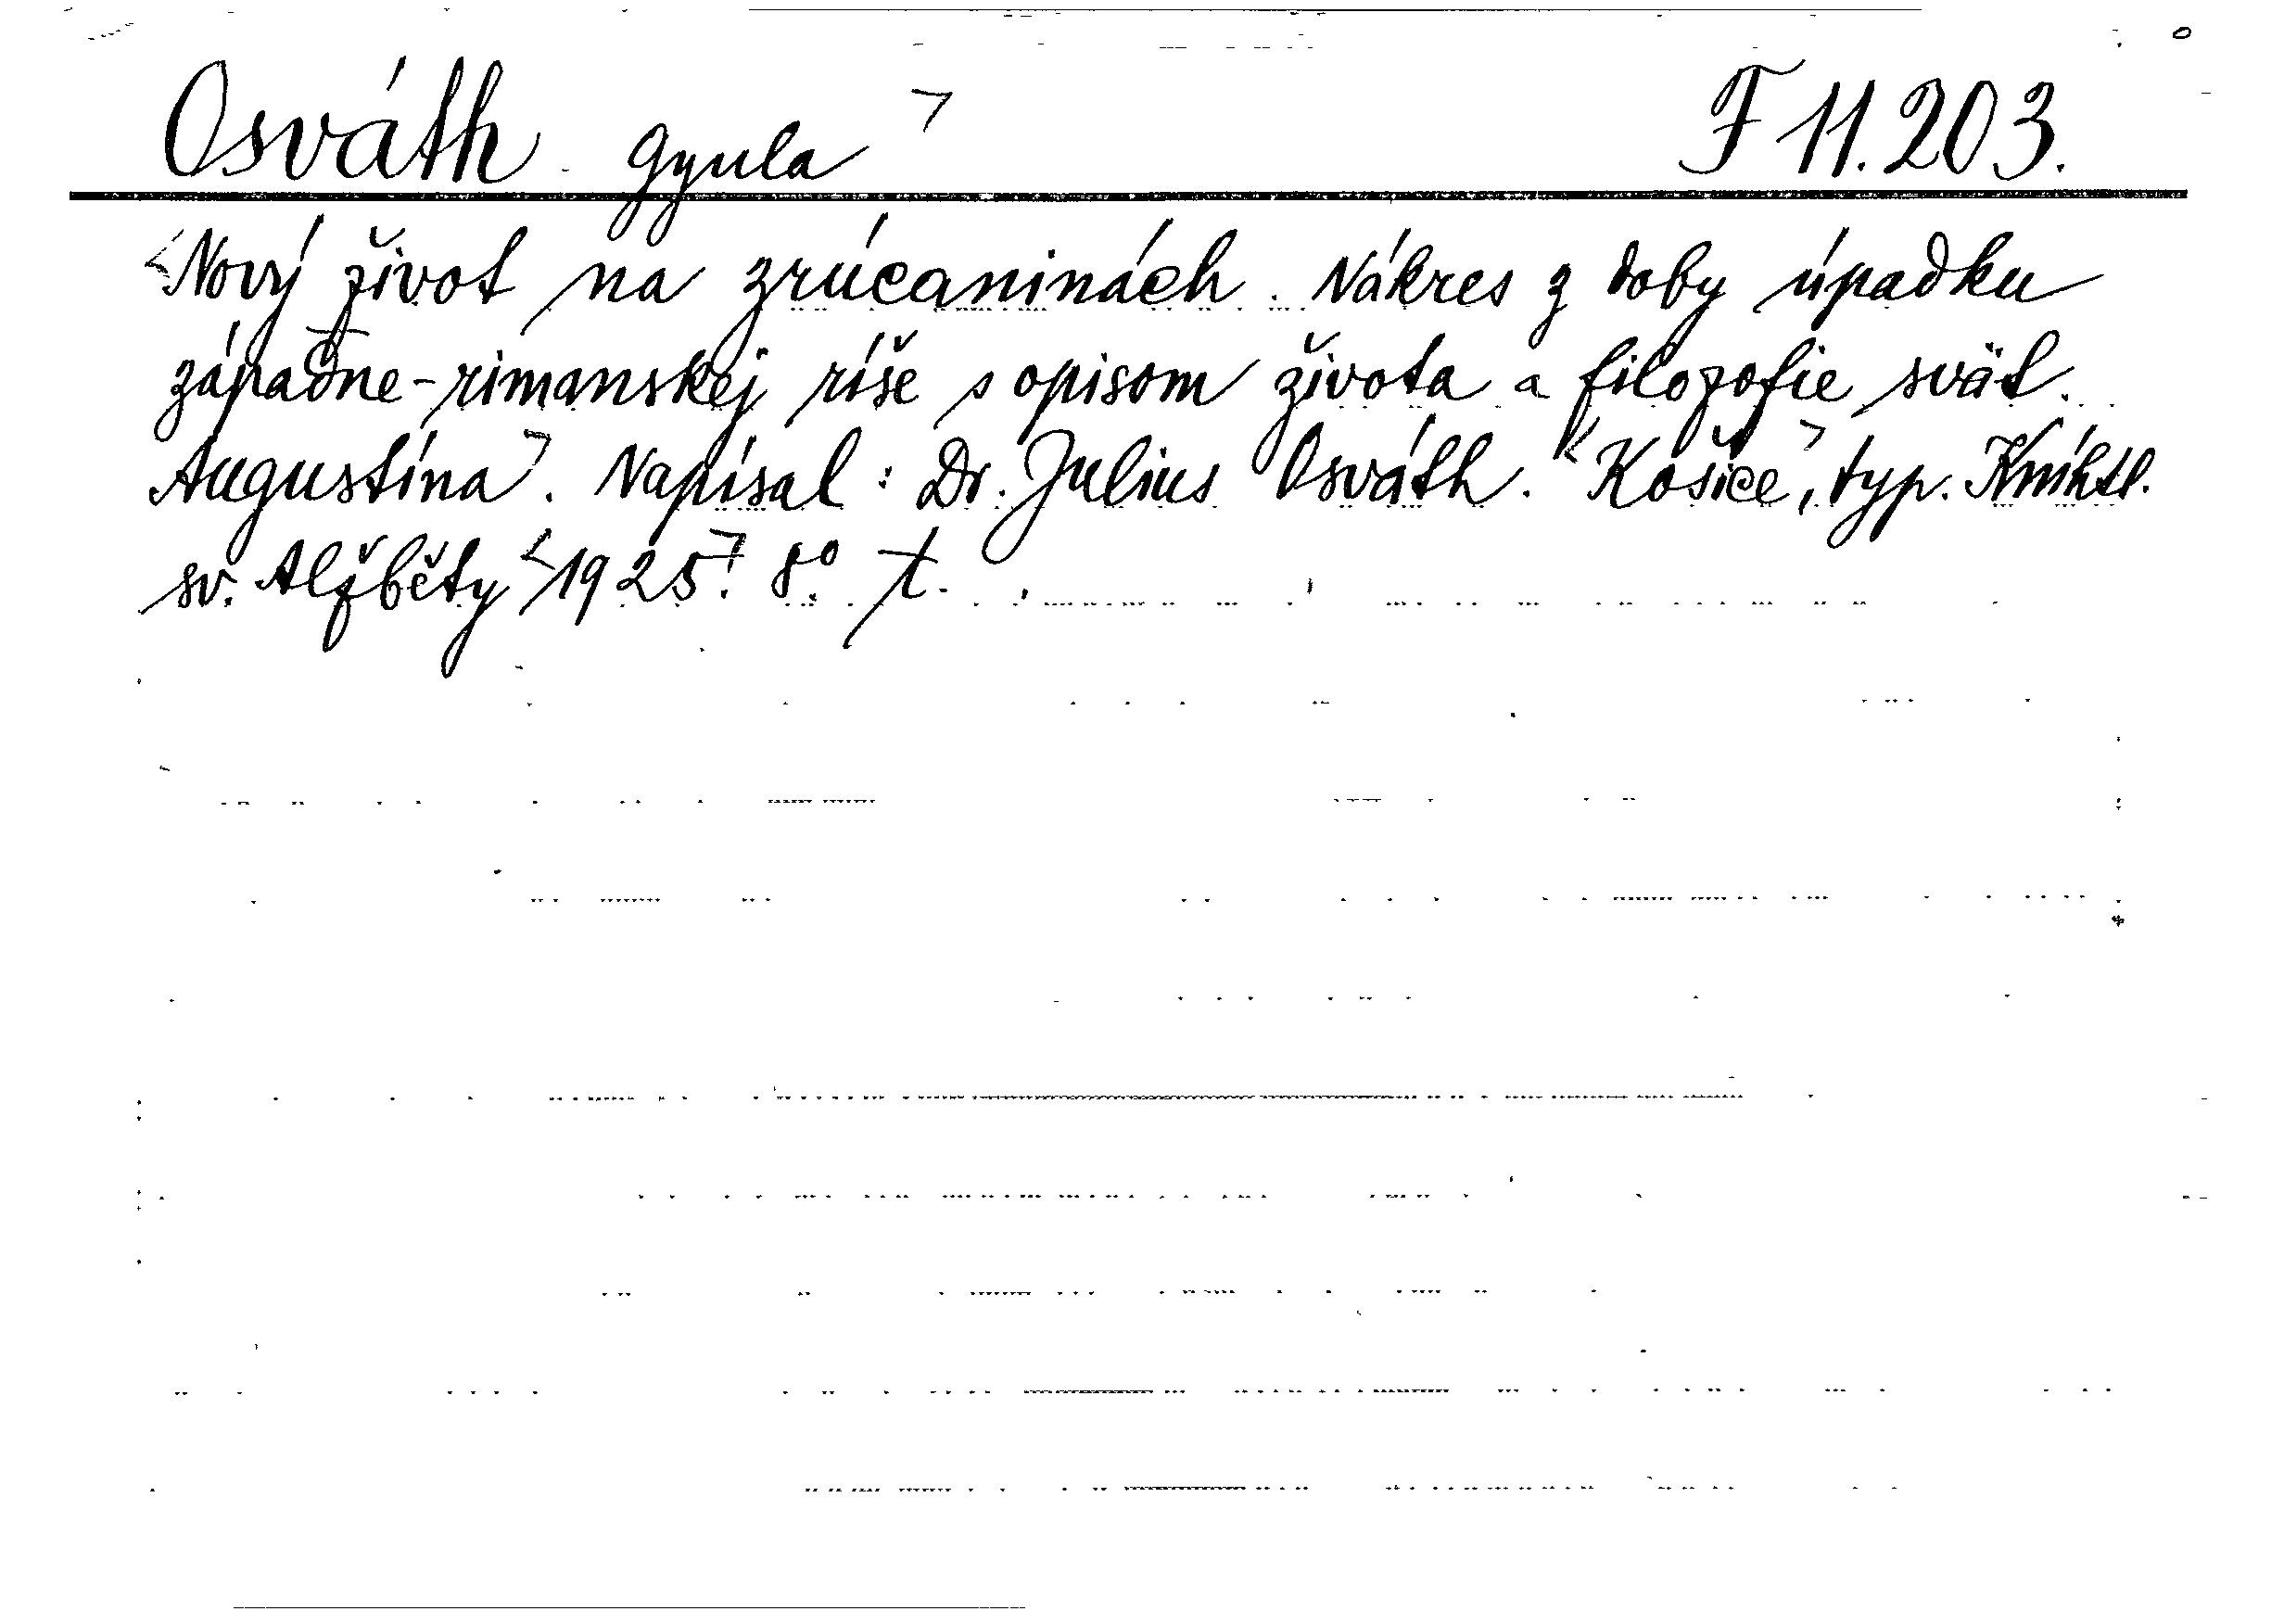 Osváth Gyula ˥ F 11.203.
<Nový život na zrúcaninách. Nákres z doby úpadku
západne-rimanskej ríše s opisom života a filozofie svät.
Augustína˥. Napísal: Dr. Julius Osváth. <Košice˥, typ. Kníhtl.
sv. Alžběty <1925˥. 8° t.